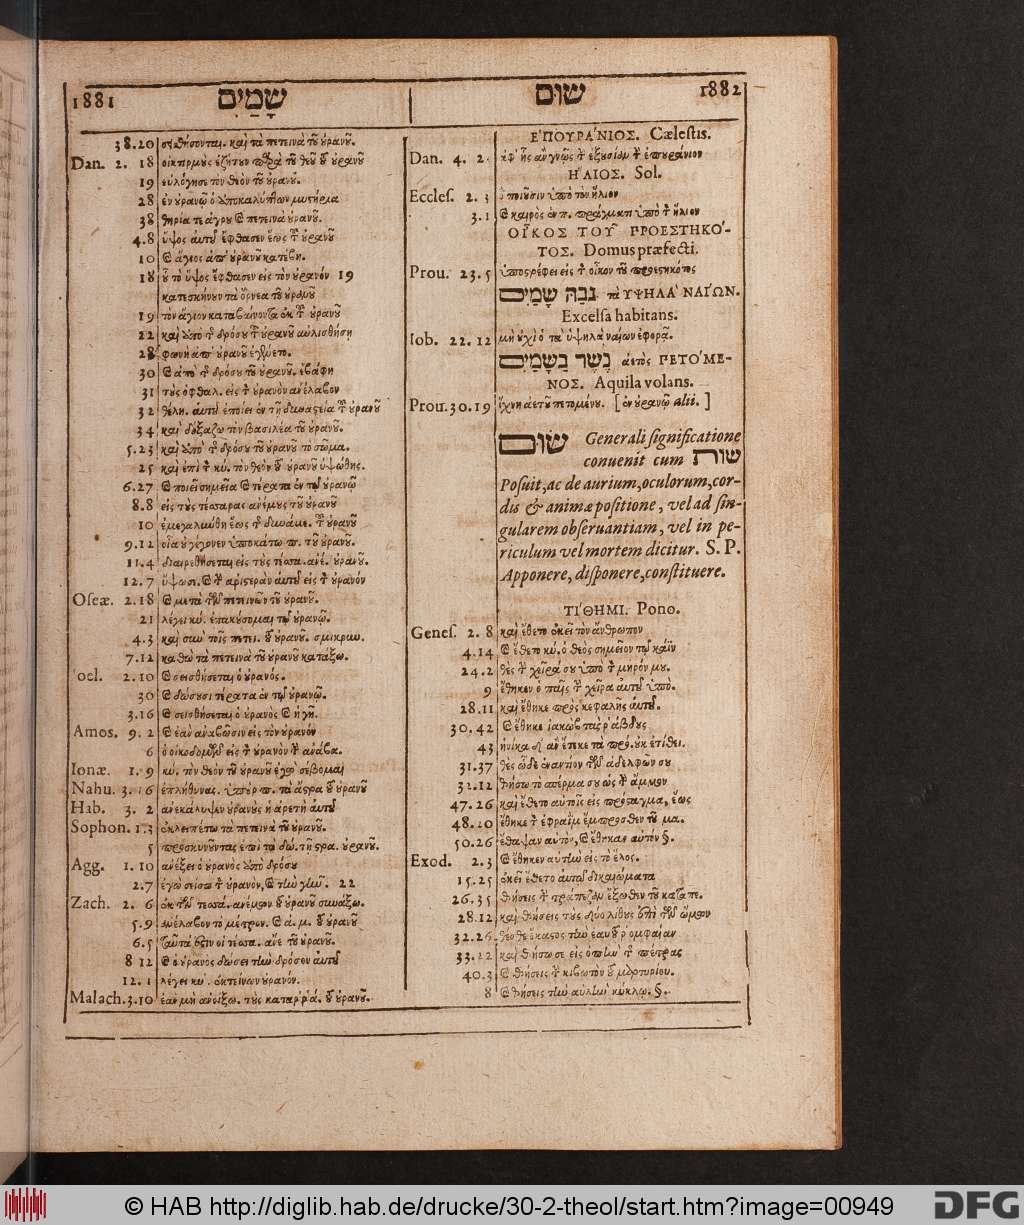 1881 שָׁמַיִם
38.20 σεισθήσονται. καὶ τὰ πετεινὰ τοῦ οὐρανοῦ.
Dan. 2. 18 οἰκτιρμοὺς ἐζήτουν παρὰ τοῦ θεοῦ τοῦ οὐρανοῦ
19 εὐλόγησε τὸν θεὸν τοῦ οὐρανοῦ.
28 ἐν οὐρανῷ ὁ ἀποκαλύπτων μυστήρια
38 θηρία τε ἀγροῦ καὶ πετεινὰ οὐρανοῦ.
4.8 ὕψος αὐτοῦ ἔφθασεν ἕως τοῦ οὐρανοῦ
10 καὶ ἅγιος ἀπ' οὐρανοῦ κατέβη.
18 οὗ τὸ ὕψος ἔφθασεν εἰς τὸν οὐρανόν 19
κατεσκήνουν τὰ ὄρνεα τοῦ οὐρανοῦ
19 τὸν ἅγιον καταβαίνοντα ἐκ τοῦ οὐρανοῦ
22 καὶ ἀπὸ τῆς δρόσου τοῦ οὐρανοῦ αὐλισθήσῃ
28 φωνὴ ἀπ' οὐρανοῦ ἐγένετο.
30 καὶ ἀπὸ τῆς δρόσου τοῦ οὐρανοῦ. ἐβάφη
31 τοὺς ὀφθαλ. εἰς τὸν οὐρανὸν ἀνέλαβον
32 θέλη. αὐτοῦ ἐποίει ἐν τῇ δυναστεία τοῦ οὐρανοῦ
34 καὶ δοξάζω τὸν βασιλέα τοῦ οὐρανοῦ.
5.23 καὶ ἀπὸ τῆς δρόσου τοῦ οὐρανοῦ τὸ σῶμα.
25 καὶ ἐπὶ τὸν κύ. τὸν θεὸν τοῦ οὐρανοῦ ὑψώθης.
6.27 καὶ ποιεῖ σημεῖα καὶ τέρατα ἐν τῷ οὐρανῷ
8.8 εἰς τοὺς τέσσαρας ἀνέμους τοῦ οὐρανοῦ
10 ἐμεγαλύνθη ἕως τῆς δυνάμε. τοῦ οὐρανοῦ
9.12 οἷα οὐ γέγονεν ὑποκάτω π. τοῦ οὐρανοῦ.
11.4 διαιρεθήσεται εἰς τοὺς τέσσα. ἀνέ. οὐρανοῦ.
12.7 ὕψωσε. καὶ τὴν ἀριστερὰν αὐτοῦ εἰς τὸν οὐρανόν
Oseæ. 2.18 καὶ μετὰ τῶν πετεινῶν τοῦ οὐρανοῦ.
21 λέγει κύ. ἐπακούσομαι τῷ οὐρανῷ.
4.3 καὶ σὺν τοῖς πετει. τοῦ οὐρανοῦ.
7.12 καθὼς τὰ πετεινὰ τοῦ οὐρανοῦ κατάξω.
Ioel. 2.10 καὶ σεισθήσεται ὁ οὐρανός.
30 καὶ δώσουσι τέρατα ἐν τῷ οὐρανῷ.
3.16 καὶ σεισθήσεται ὁ οὐρανὸς καὶ ἡ γῆ.
Amos. 9. 2 καὶ ἐὰν ἀναβῶσιν εἰς τὸν οὐρανόν
6 ὁ οἰκοδομῶν εἰς τὸν οὐρανὸν τὴν ἀνάβα.
Ionæ. 1. 9 κύ. τὸν θεὸν τοῦ οὐρανοῦ ἐγὼ σέβομαι
Nahu. 3. 16 ἐπλήθυνας. ὑπὲρ π. τὰ ἄστρα τοῦ οὐρανοῦ
Hab. 3. 2 ἀνεκάλυψεν οὐρανοὺς ἡ ἀρετὴ αὐτοῦ
Sophon. 1.3 ἐκλειπέτω τὰ πετεινὰ τοῦ οὐρανοῦ.
5 προσκυνοῦντας ἐπὶ τὰ δώ. τῇ στρα. οὐρανοῦ.
Agg. 1. 10 ἀνέξει ὁ οὐρανὸς ἀπὸ δρόσου
2.7 ἐγὼ σείσω τὸν οὐρανόν, καὶ τὴν γῆν. 22
Zach. 2. 6 ἐκ τῶν τεσσά. ἀνέμων τοῦ οὐρανοῦ συνάξω.
5.9 ἀνέλαβον τὸ μέτρον. καὶ ἀ. μ. τοῦ οὐρανοῦ
6.5 ταῦτά ἐστιν οἱ τέσσα. ἄνε τοῦ οὐρανοῦ.
8 12 καὶ ὁ οὐρανὸς δώσει τὴν δρόσον αὐτοῦ
12. 1 λέγει κύ. ἐκτείνων οὐρανόν.
Malach. 3.10 ἐὰν μὴ ἀνοίξω. τοὺς καταῤῥά. τοῦ οὐρανοῦ.
שום 1882
ἘΠΟΥΡΑΝΙΟΣ. Cælestis.
Dan. 4. 2. ἀφ' ἧς ἂν γνῷς τὴν ἐξουσίαν τὴν ἐπουράνιον
ἭΛΙΟΣ. Sol.
Eccles. 2. 3 ὃ ποιοῦσιν ὑπὸ τὸν ἥλιον
3. 1 καὶ καιρὸς ἐν π. πράγματι ὑπὸ τὸν ἥλιον
ΟἾΚΟΣ ΤΟΥ͂ ΠΡΟΕΣΤΗΚΌ-
ΤΟΣ. Domus præfecti.
Prou. 23. 5 ὑποστρέφει εἰς τὸν οἶκον τοῦ προεστηκότος
גֹּבַהּ שָׁמַיִם τὰ ὙΨΗΛᾺ ΝΑΊΩΝ.
Excelsa habitans.
Iob. 22. 12 μὴ οὐχὶ ὁ τὰ ὑψηλὰ ναίων ἐφορᾷ.
נֶשֶׁר בַּשָּׁמַיִם ἀετὸς ΠΕΤΌΜΕ-
ΝΟΣ. Aquila volans.
Prou. 30. 19 ἴχνη ἀετοῦ πετομένου. [ ἐν οὐρανῷ alii. ]
שׂוּם Generali significatione
conuenit cum שות
Posuit, ac de aurium, oculorum, cor-
dis & animæ positione, vel ad sin-
gularem obseruantiam, vel in pe-
riculum vel mortem dicitur. S. P.
Apponere, disponere, constituere.
ΤΙΘΗΜΙ. Pono.
Genes. 2. 8 καὶ ἔθετο ἐκεῖ τὸν ἄνθρωπον
4.14 καὶ ἔθετο κύ. ὁ θεὸς σημεῖον τῷ κάϊν
24.2 θὲς τὴν χεῖρά σου ὑπὸ τὸν μηρόν μου.
9 ἔθηκεν ὁ παῖς τὴν χεῖρα αὐτοῦ ὑπὸ.
28.11 καὶ ἔθηκε πρὸς κεφαλῆς αὐτοῦ.
30.42 καὶ ἔθηκε ἰακὼβ τὰς ῥάβδους
43 ἡνίκα δ' ἂν ἔτεκε τὰ πρό. οὐκ ἐτίθει.
31.37 θὲς ὧδε ἐναντίον τῶν ἀδελφῶν σου
32.12 θήσω τὸ σπέρμα σου ὡς τὴν ἄμμον
47.26 καὶ ἔθετο αὐτοῖς εἰς πρόσταγμα, ἕως
48.20 ἔθηκε τὸν ἐφραῒμ ἔμπροσθεν τοῦ μα.
50.26 ἔθαψαν αὐτὸν, καὶ ἔθηκαν αὐτόν §.
Exod. 2.3 καὶ ἔθηκεν αὐτὴν εἰς τὸ ἕλος.
15.25 ἐκεῖ ἔθετο αὐτῷ δικαιώματα
26.35 θήσεις τὴν τράπεζαν ἔξωθεν τοῦ καταπε.
28.12 καὶ θήσεις τοὺς δύο λίθους ἐπὶ τῶν ὤμων
32.26 θέσθε ἕκαστος τὴν ἑαυτοῦ ῥομφαίαν
33.22 καὶ θήσω σε εἰς ὀπὴν τῆς πέτρας
40.3 καὶ θήσεις τὴν κιβωτὸν τοῦ μαρτυρίου.
8 καὶ θήσεις τὴν αὐλὴν κύκλῳ. §.
© HAB http://diglib.hab.de/drucke/30-2-theol/start.htm?image=00949
DFG